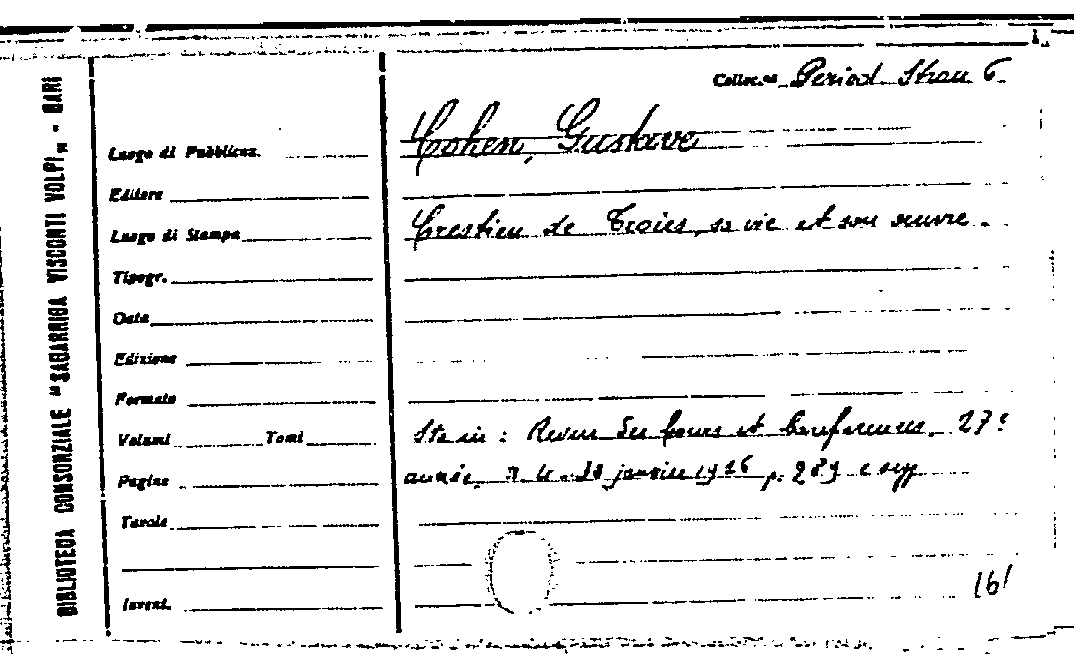 BIBLIOTECA CONSORZIALE "SAGARRIGA VISCONTI VOLPI" - BARI
Colloc.ne Period. Stran 6
Cohen, Gustave
Luogo di Pubblicaz.
Editore
Luogo di Stampa
Crestien de Troies, sa vie et son œuvre.
Tipogr.
Data
Edizione
Formato
Volumi Tomi
Sta in: Revue des Cours et Conférences. 27e
Pagine
année, janvier 1926 p. 289 e segg
Tavole
Invent.
161